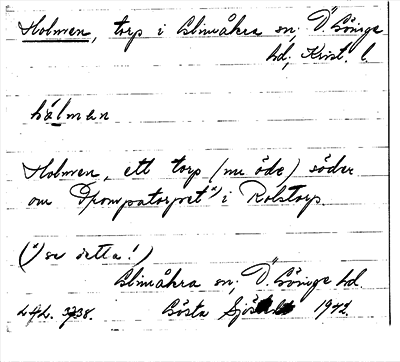 Holmen, torp i Glimåkra sn; Ö. Göinge
hd; Krist. l.
hålmen
Holmen, ett torp (nu öde) söder
om "Trompatorpet" i Rolstorp.
(") se detta!)
Glimåkra sn; Ö. Göinge hd.
L.A.L. 3738. Gösta 1942